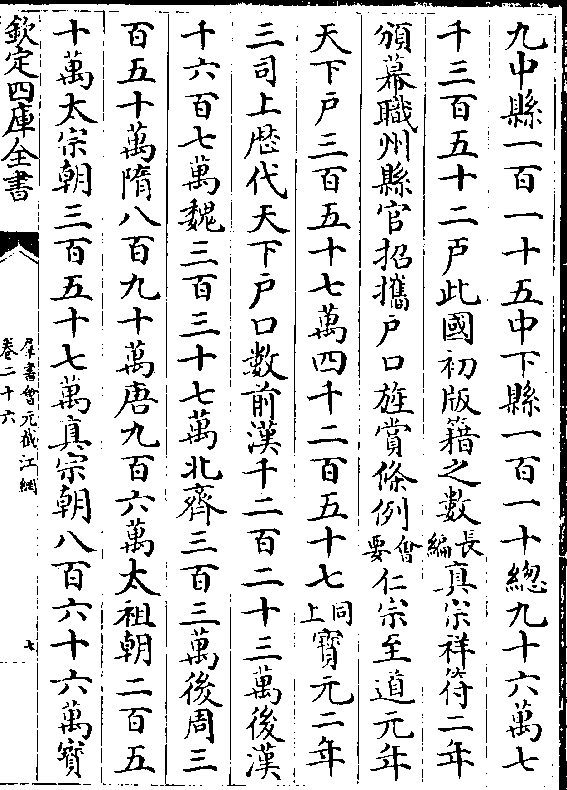 九中縣一百一十五中下縣一百一十總九十六萬七
千三百五十二戸此國初版籍之數長編真宗祥符二年
頒幕職州縣官招攜戸口旌賞條例會要仁宗至道元年
天下戸三百五十七萬四千二百五十七同上寳元二年
三司上歴代天下戸口數前漢千二百二十三萬後漢
千六百七萬魏三百三十七萬北齊三百三萬後周三
百五十萬隋八百九十萬唐九百六萬太祖朝二百五
十萬太宗朝三百五十七萬真宗朝八百六十六萬寳
欽定四庫全書
羣書會元截江網
卷二十六
七